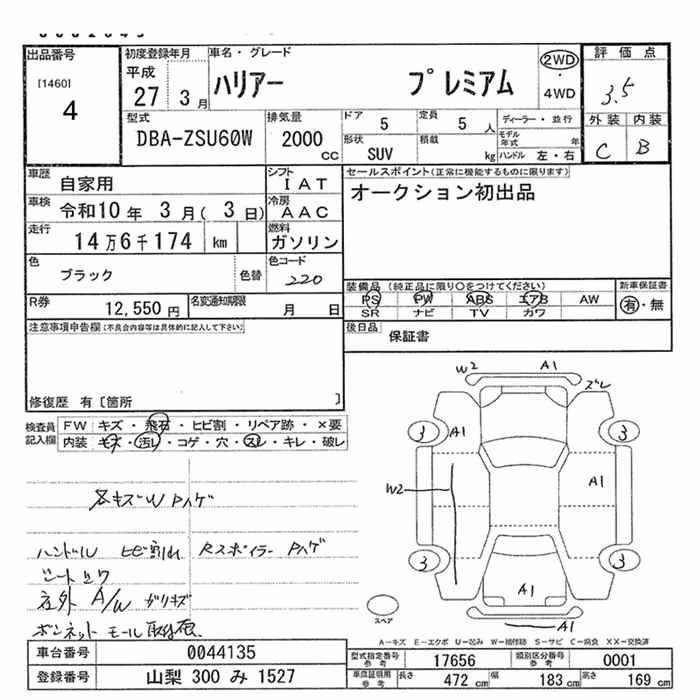 出品番号
[1460]
4
初度登録年月
平成
27 3月
車名・グレード
ハリアー プレミアム
2WD
・
4WD
評価点
3.5
外装 内装
C B
型式
DBA-ZSU60W
排気量
2000
cc
ドア
5
定員
5 人
形状
SUV
積載
kg
ディーラー・並行
モデル年式 年
ハンドル 左・右
車歴
自家用
シフト
IAT
車検
令和10年 3月(3日)
冷房
AAC
走行
14万6千174 km
燃料
ガソリン
色
ブラック
色替
色コード
220
R券
12,550円
名変通知期限
月 日
セールスポイント(正常に機能するものに限ります)
オークション初出品
装備品 (純正品に限り〇をつけてください)
PS PW ABS エアB AW
SR ナビ TV カワ
新車保証書
有・無
後日品
保証書
注意事項申告欄(不具合内容等は具体的に記入して下さい)
修復歴 有〔箇所 〕
検査員
記入欄
FW キズ・飛石・ヒビ割・リペア跡・×要
内装 キズ・汚レ・コゲ・穴・スレ・キレ・破レ
各キズW Pハゲ
ハンドル ヒビ割れ Rスポイラー Pハゲ
シート
左外 A/W ガリキズ
ボンネット モール
W2 A1
ズレ
3 A1 3
A1
W2
3 3
A1
A1
スペア
A-キズ E-エクボ U-凹み W-補修跡 S-サビ C-腐食 XX-交換済
車台番号
0044135
登録番号
山梨 300 み 1527
型式指定番号
参考
17656
類別区分番号
参考
0001
車検証明用
参考
長さ
472 cm
幅
183 cm
高さ
169 cm